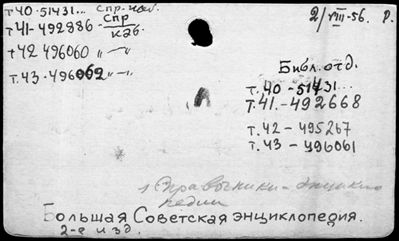 т40-51431... спр. каб. 2/VIII-56. р.
т41-492986 - спр каб.
т42 496060 " — "
т.43 - 496062 " — "
Библ. отд.
т.40 - 51431...
т.41. - 492668
т.42 - 495267
т.43 - 496061
Справочники - энцикло
педии
Большая Советская энциклопедия.
2-е изд.